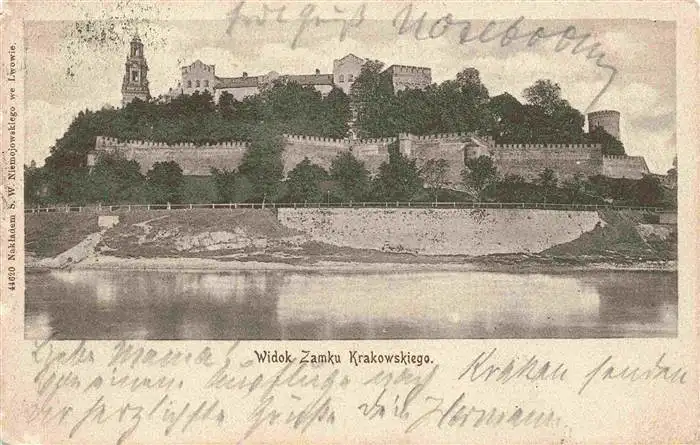 44610 Nakładem S. W. Niemojowskiego we Lwowie.
Widok Zamku Krakowskiego.
Liebe Mama!
Von einem Ausfluge nach Krakau senden
dir herzlichste Grüße dein Hermann